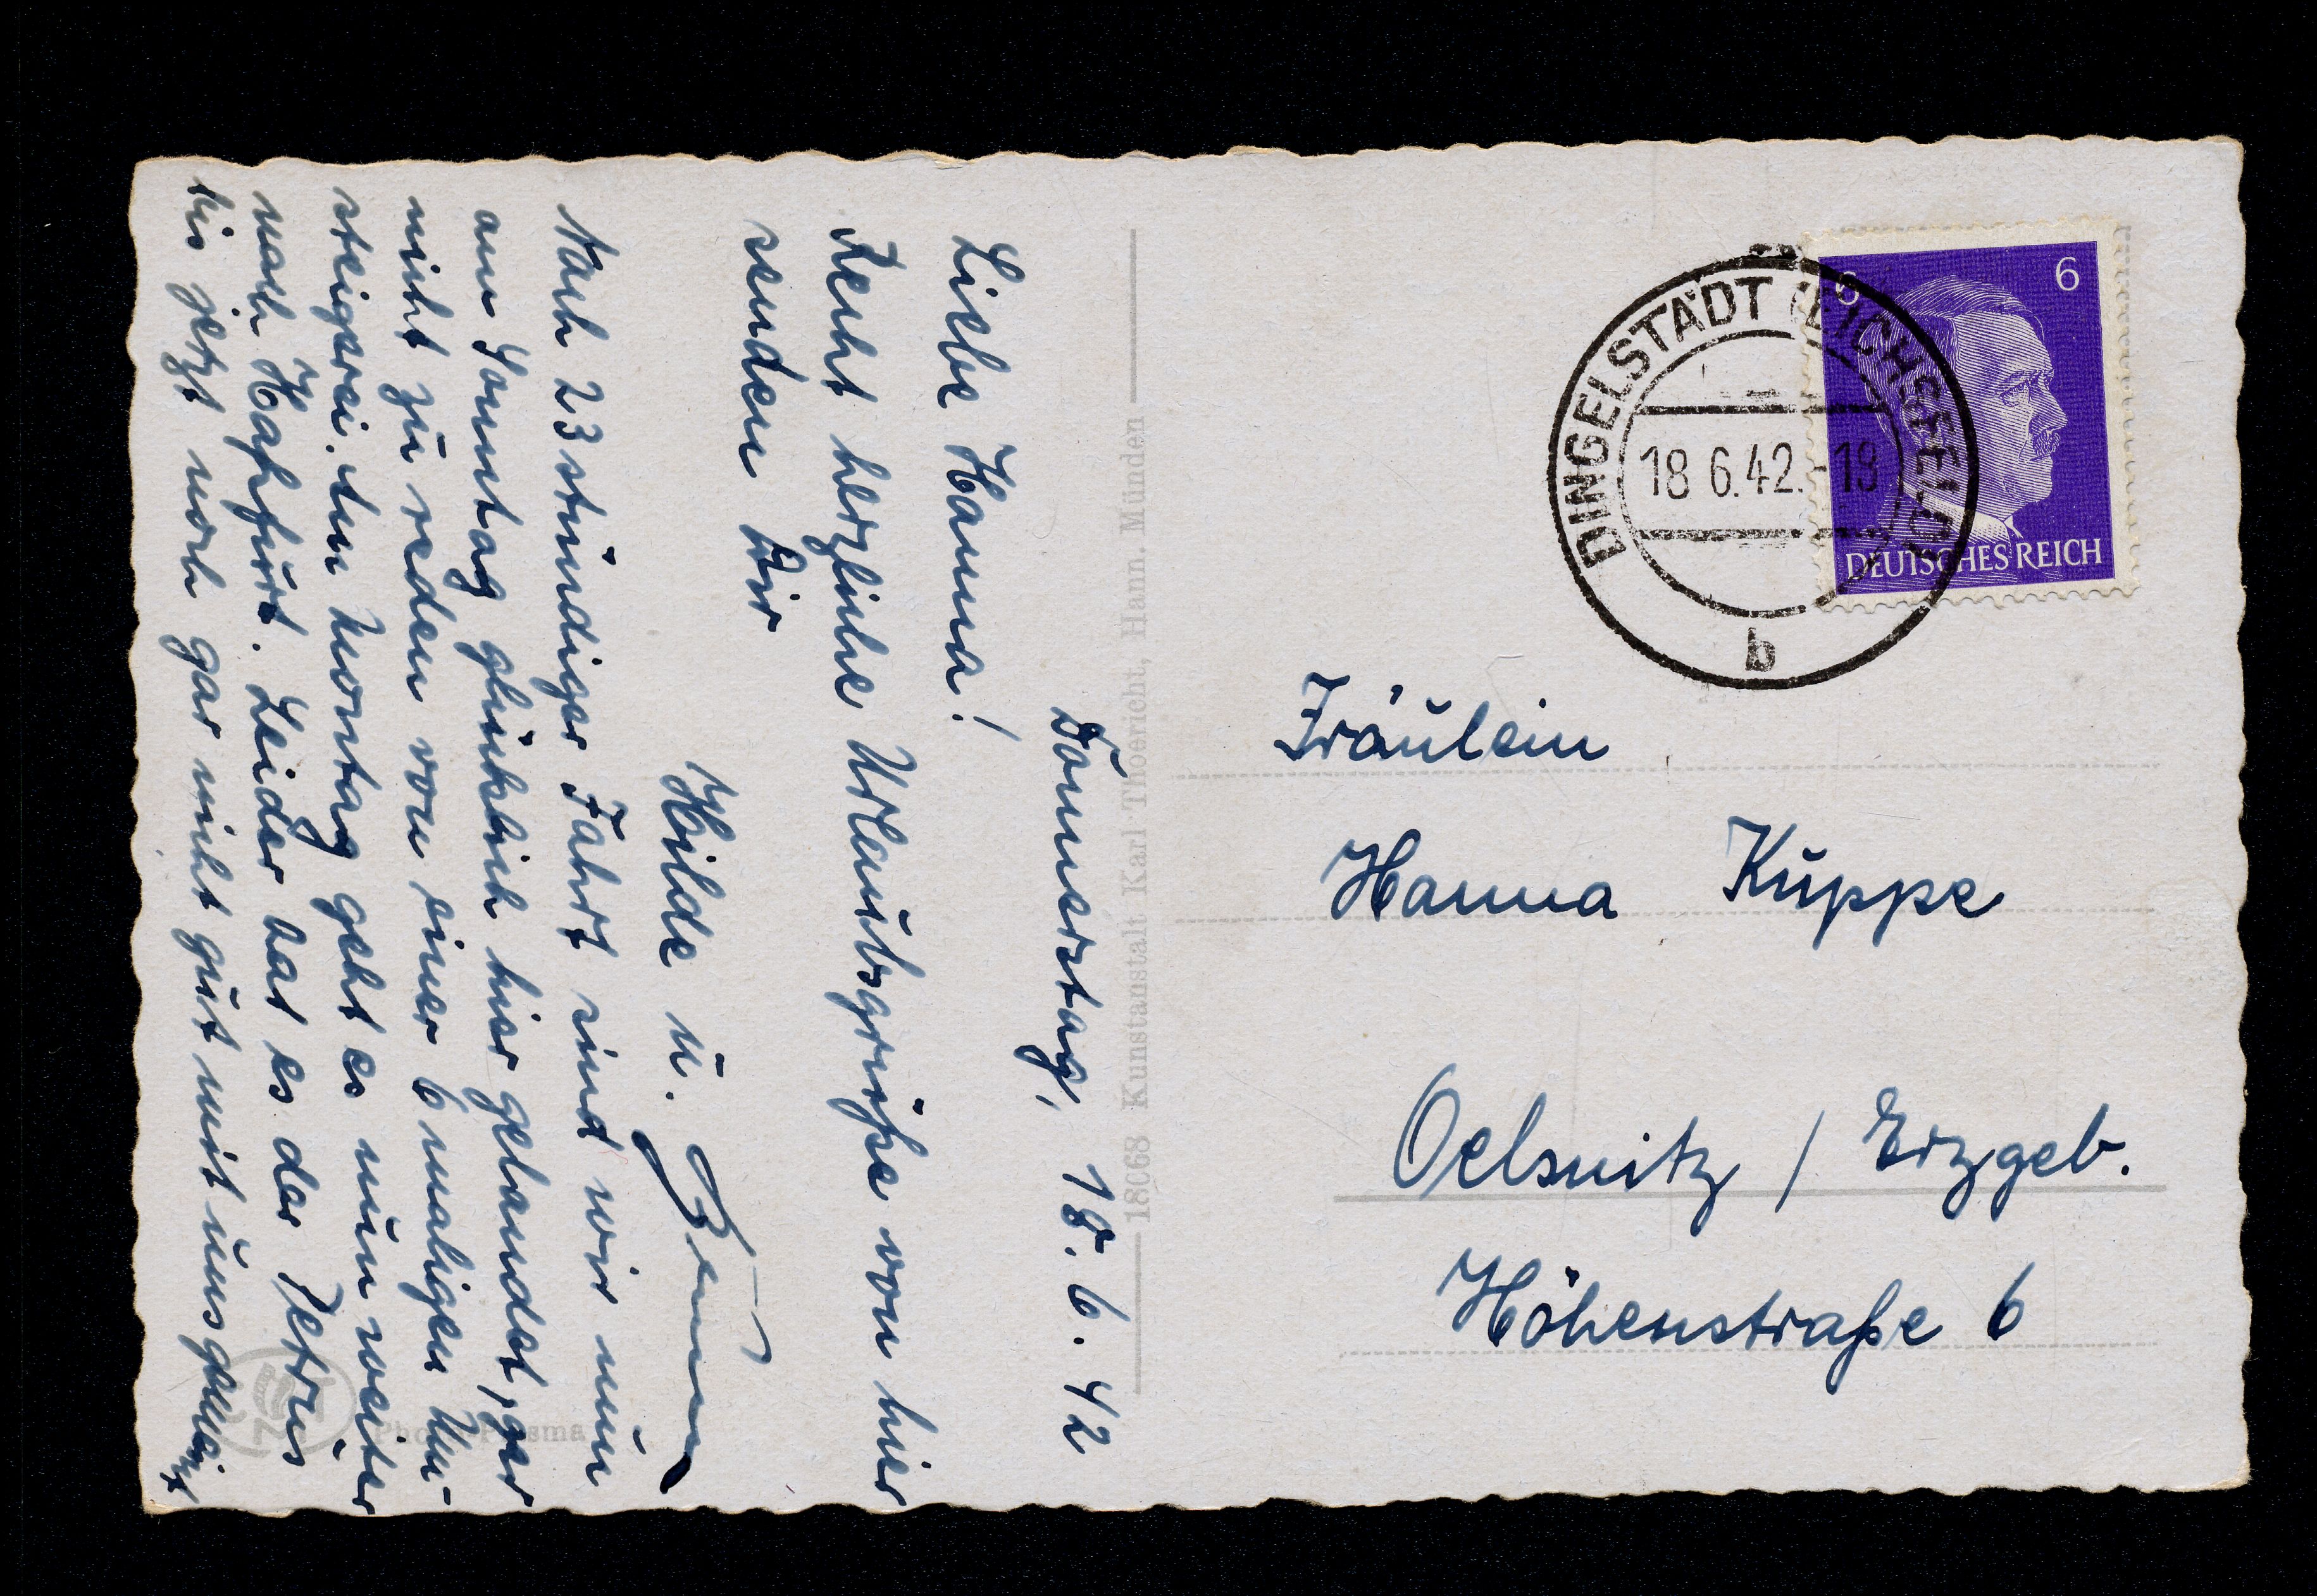 Donnerstag, 18. 6. 42
Liebe Hanna!
Recht herzliche Urlaubsgrüße von hier
senden Dir
Hilde u.
Nach 23 stündiger Fahrt sind wir nun
am Sonntag glücklich hier gelandet, gar
nicht zu reden von einer 6 maligen Um-
steigerei. Am Montag geht es nun weiter
nach Haßfurt. Leider hat es der Petrus
bis jetzt noch gar nicht gut mit uns gemeint
18068 Kunstanstalt Karl Thoericht, Hann. Münden
DINGELSTÄDT (EICHSFELD)
18 6.42.-19
b
6 6
DEUTSCHES REICH
Fräulein
Hanna Kuppe
Oelsnitz / Erzgeb.
Höhenstraße 6